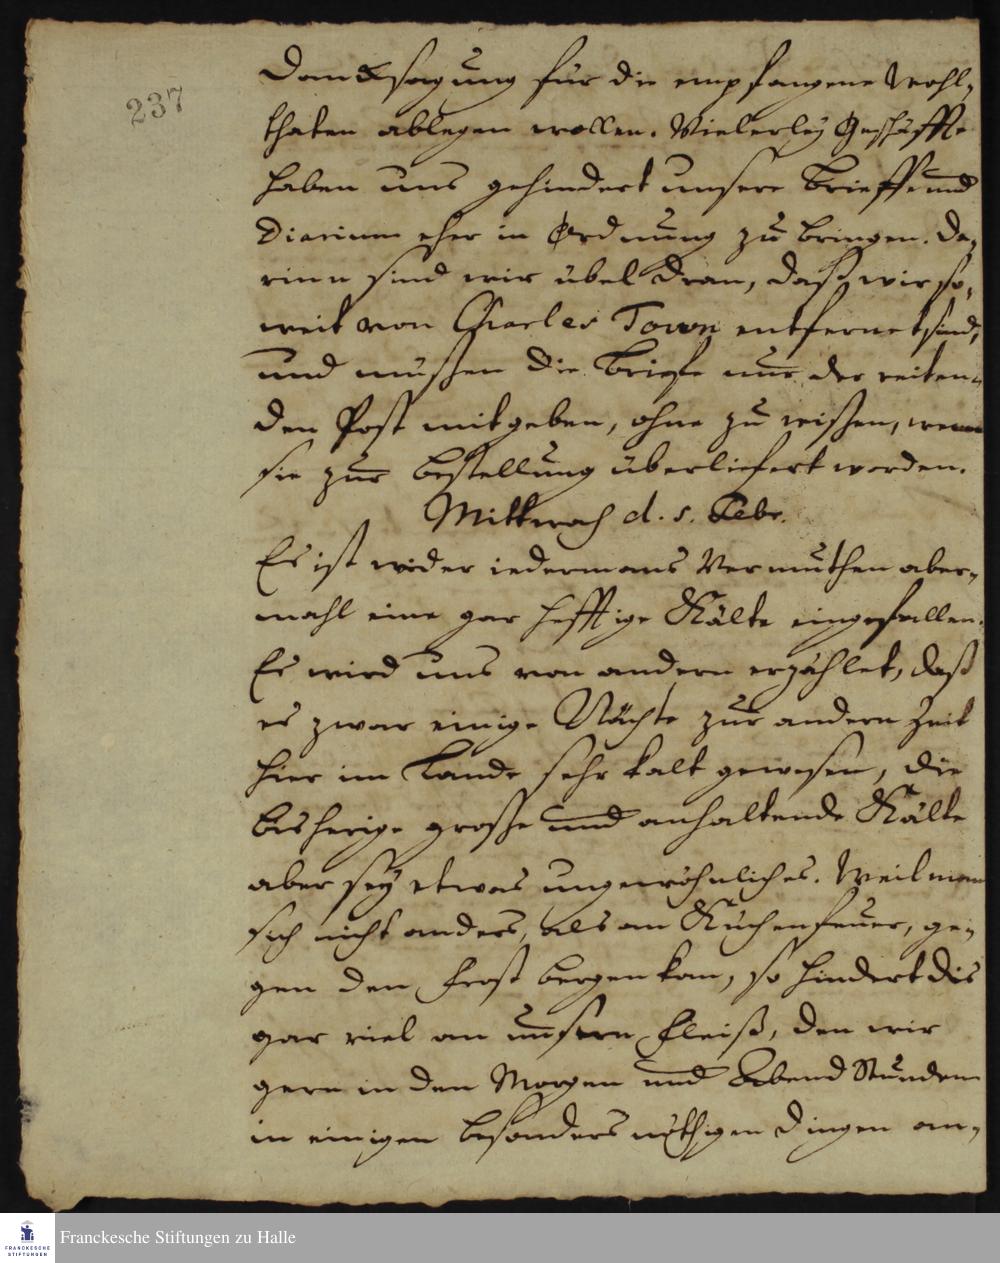 237
Dancksagung für die empfangene Wohl-
thaten ablegen wollen. Vielerley Geschäffte
haben uns gehindert unsere Brieffe und
Diarium eher in Ordnung zu bringen. Da-
rinn sind wir übel dran, daß wir so-
weit von Charles Town entfernet sind,
und müßen die Briefe nur der reiten-
den Post mitgeben, ohne zu wißen, wenn
sie zur bestellung überliefert worden.
Mittwoch d. 5. Febr.
Es ist wider iedermans Vermuthen aber-
mahl eine gar hefftige Kälte eingefallen.
Es wird uns von andern erzählet, daß
es zwar einige Nächte zur andern Zeit
hier im Lande sehr kalt gewesen, die
bisherige große und anhaltende Kälte
aber sey etwas ungewöhnliches. Weil man
sich nicht anders, als am Küchenfeuer, ge-
gen den Frost bergen kan, so hindert dis
gar viel an unsern Fleiß, den wir
gern in den Morgen und Abend Stunden
in einigen besonders nöthigen Dingen an-
FRANCKESCHE
STIFTUNGEN
Franckesche Stiftungen zu Halle